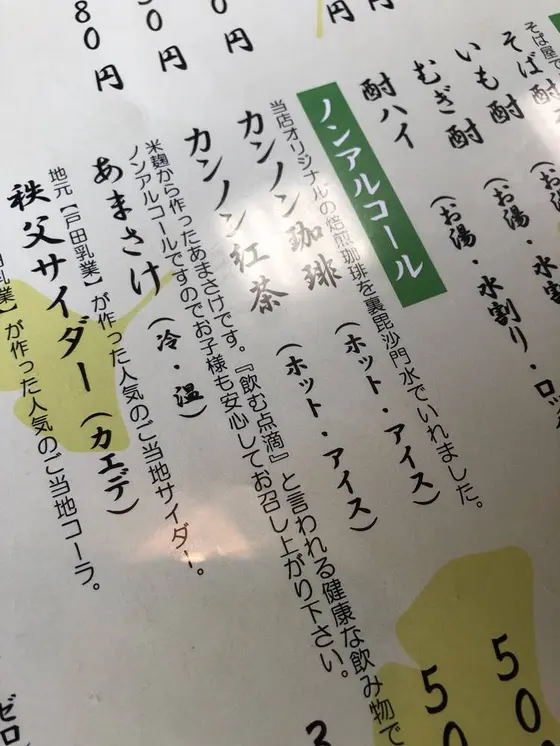 そば屋で
そば酎（お
いも酎（お湯・水割り・ロッ
むぎ酎（お湯・水割
酎ハイ
ノンアルコール
当店オリジナルの焙煎珈琲を裏毘沙門水でいれました。
カンノン珈琲（ホット・アイス）
カンノン紅茶（ホット・アイス）
米麹から作ったあまさけです。『飲む点滴』と言われる健康な飲み物で
ノンアルコールですのでお子様も安心してお召し上がり下さい。
あまさけ（冷・温）
地元【戸田乳業】が作った人気のご当地サイダー。
秩父サイダー（カエデ）
乳業】が作った人気のご当地コーラ。
円
円
円
0円
80円
50
50
3
ゼロ